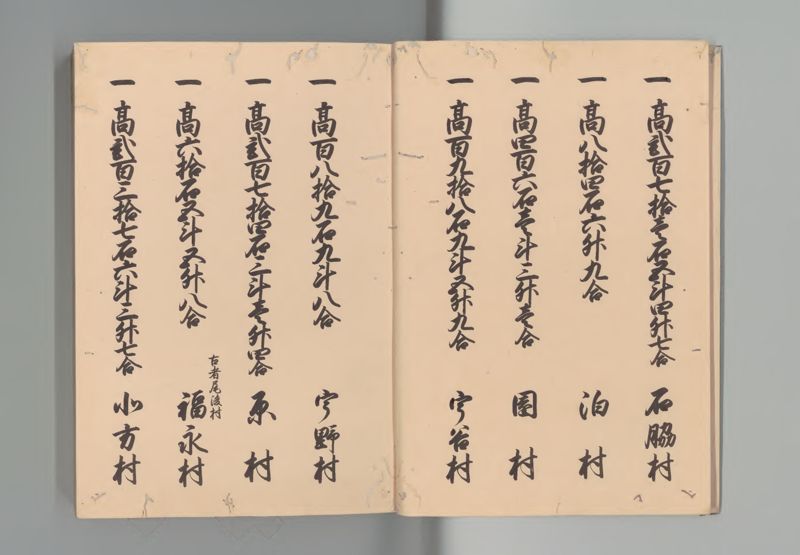 一 高弐百七拾壱石五斗四升七合 石脇村
一 高八拾四石六升九合 泊村
一 高四百六石壱斗三升壱合 園村
一 高百九拾八石九斗五升九合 宇谷村
一 高百八拾九石九斗八合 宇野村
一 高弐百七拾四石三斗壱升四合 原村
一 高六拾石五斗五升八合 古者尾後村 福永村
一 高弐百三拾七石六斗三升七合 小方村